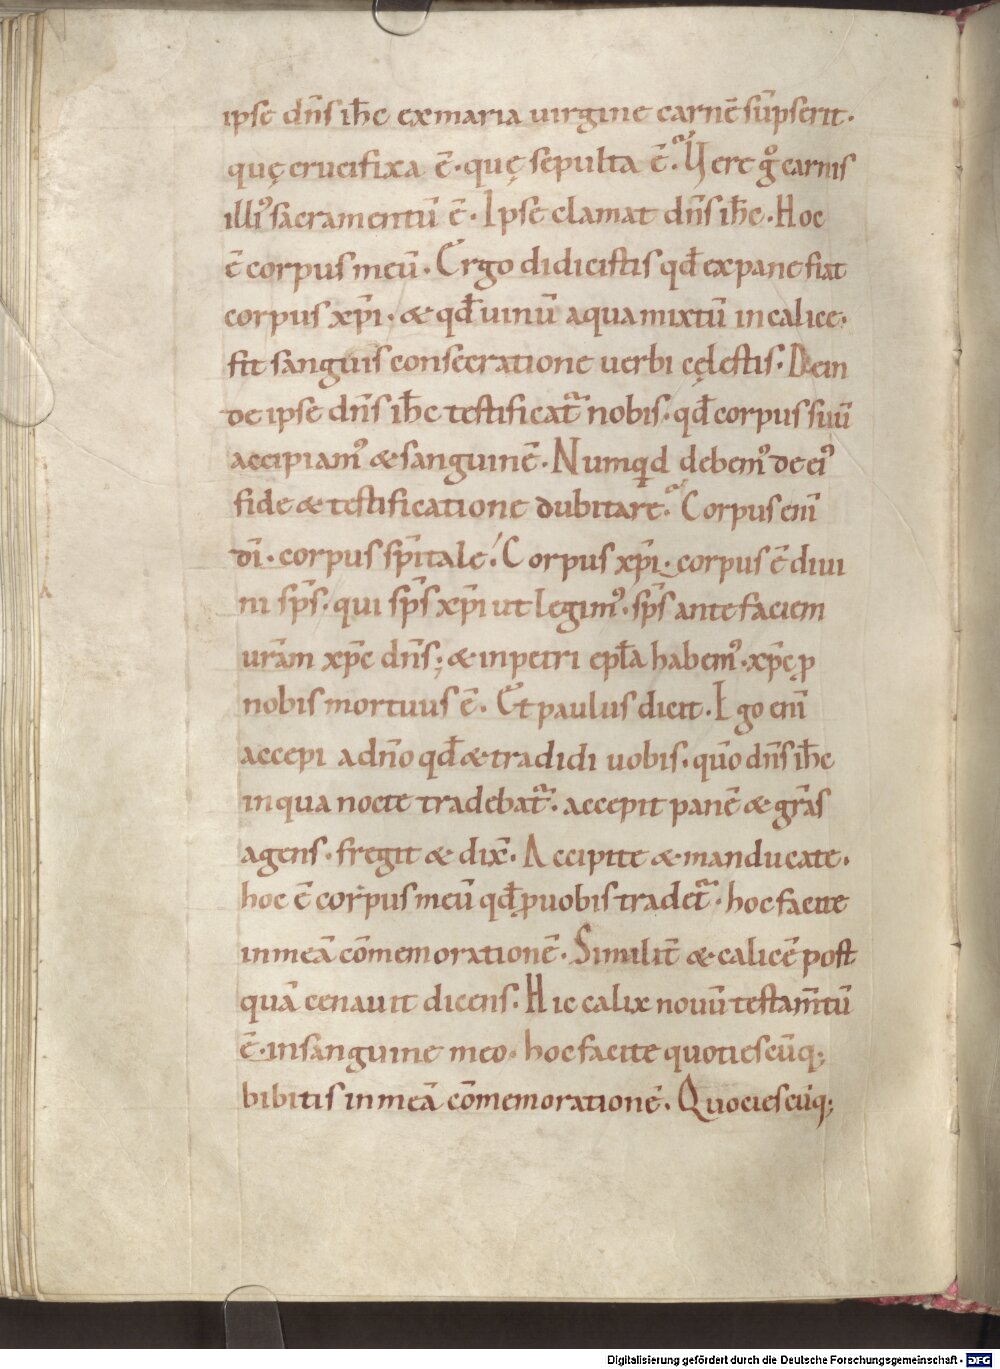 ipse dn̄s ih̄c ex maria uirgine carnē sūpserit·
quę crucifixa ē· quę sepulta ē? Vere gͦ carnis
illiꝰ sacramentū ē· Ipse clamat dn̄s ih̄c· Hoc
ē corpus meū· Ergo didicistis qđ ex pane fiat
corpus xp̄i· & qđ uinū aqua mixtū in calice·
fit sanguis consecratione uerbi cęlestis· Dein
de ipse dn̄s ih̄c testificat᷑ nobis· qđ corpus suū
accipiamꝰ & sanguinē· Numquid debemꝰ de eiꝰ
fide & testificatione dubitare? Corpus enī
dī· corpus sp̄itale· Corpus xp̄i· corpus ē diui
ni sp̄s· qui sp̄s xp̄i ut legimꝰ· sp̄s ante faciem
urām xp̄c dn̄s; & in petri epła habemꝰ· xp̄c ꝓ
nobis mortuus ē· Et paulus dicit· Ego enī
accepi a dn̄o qđ & tradidi uobis· qūo dn̄s ih̄c
in qua nocte tradebat᷑· accepit panē & gr̄as
agens· fregit & dix̄· Accipite & manducate·
hoc ē corpus meū qđ ꝓ uobis tradet᷑· hoc facite
in meā cōmemorationē· Similit̄ & calicē post
quā cenauit dicens· Hic calix nouū testam̄tū
ē· in sanguine meo· hoc facite quotiescūq;
bibitis in meā cōmemorationē· Quociescūq;
Digitalisierung gefördert durch die Deutsche Forschungsgemeinschaft - DFG